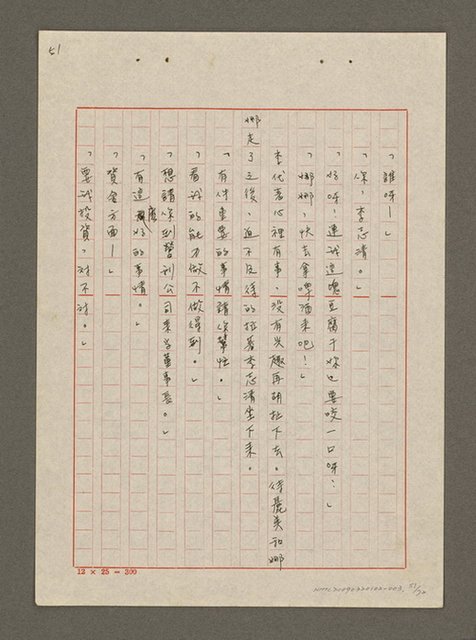 51
「誰呀！」
「你，李志清。」
「好呀！連我這塊豆腐干妳也要咬一口呀？」
「娜娜，快去拿啤酒來吧！」
李代書心裡有事，沒有興趣再胡扯下去。待麗美和娜
娜走了之後，迫不及待的拉著李志清坐下來。
「有件重要的事情請你幫忙。」
「看我的能力做不做得到。」
「想請你到營利公司來當董事長。」
「有這麼好的事情。」
「資金方面！」
「要我投資，對不對。」
12 × 25 = 300
51/72